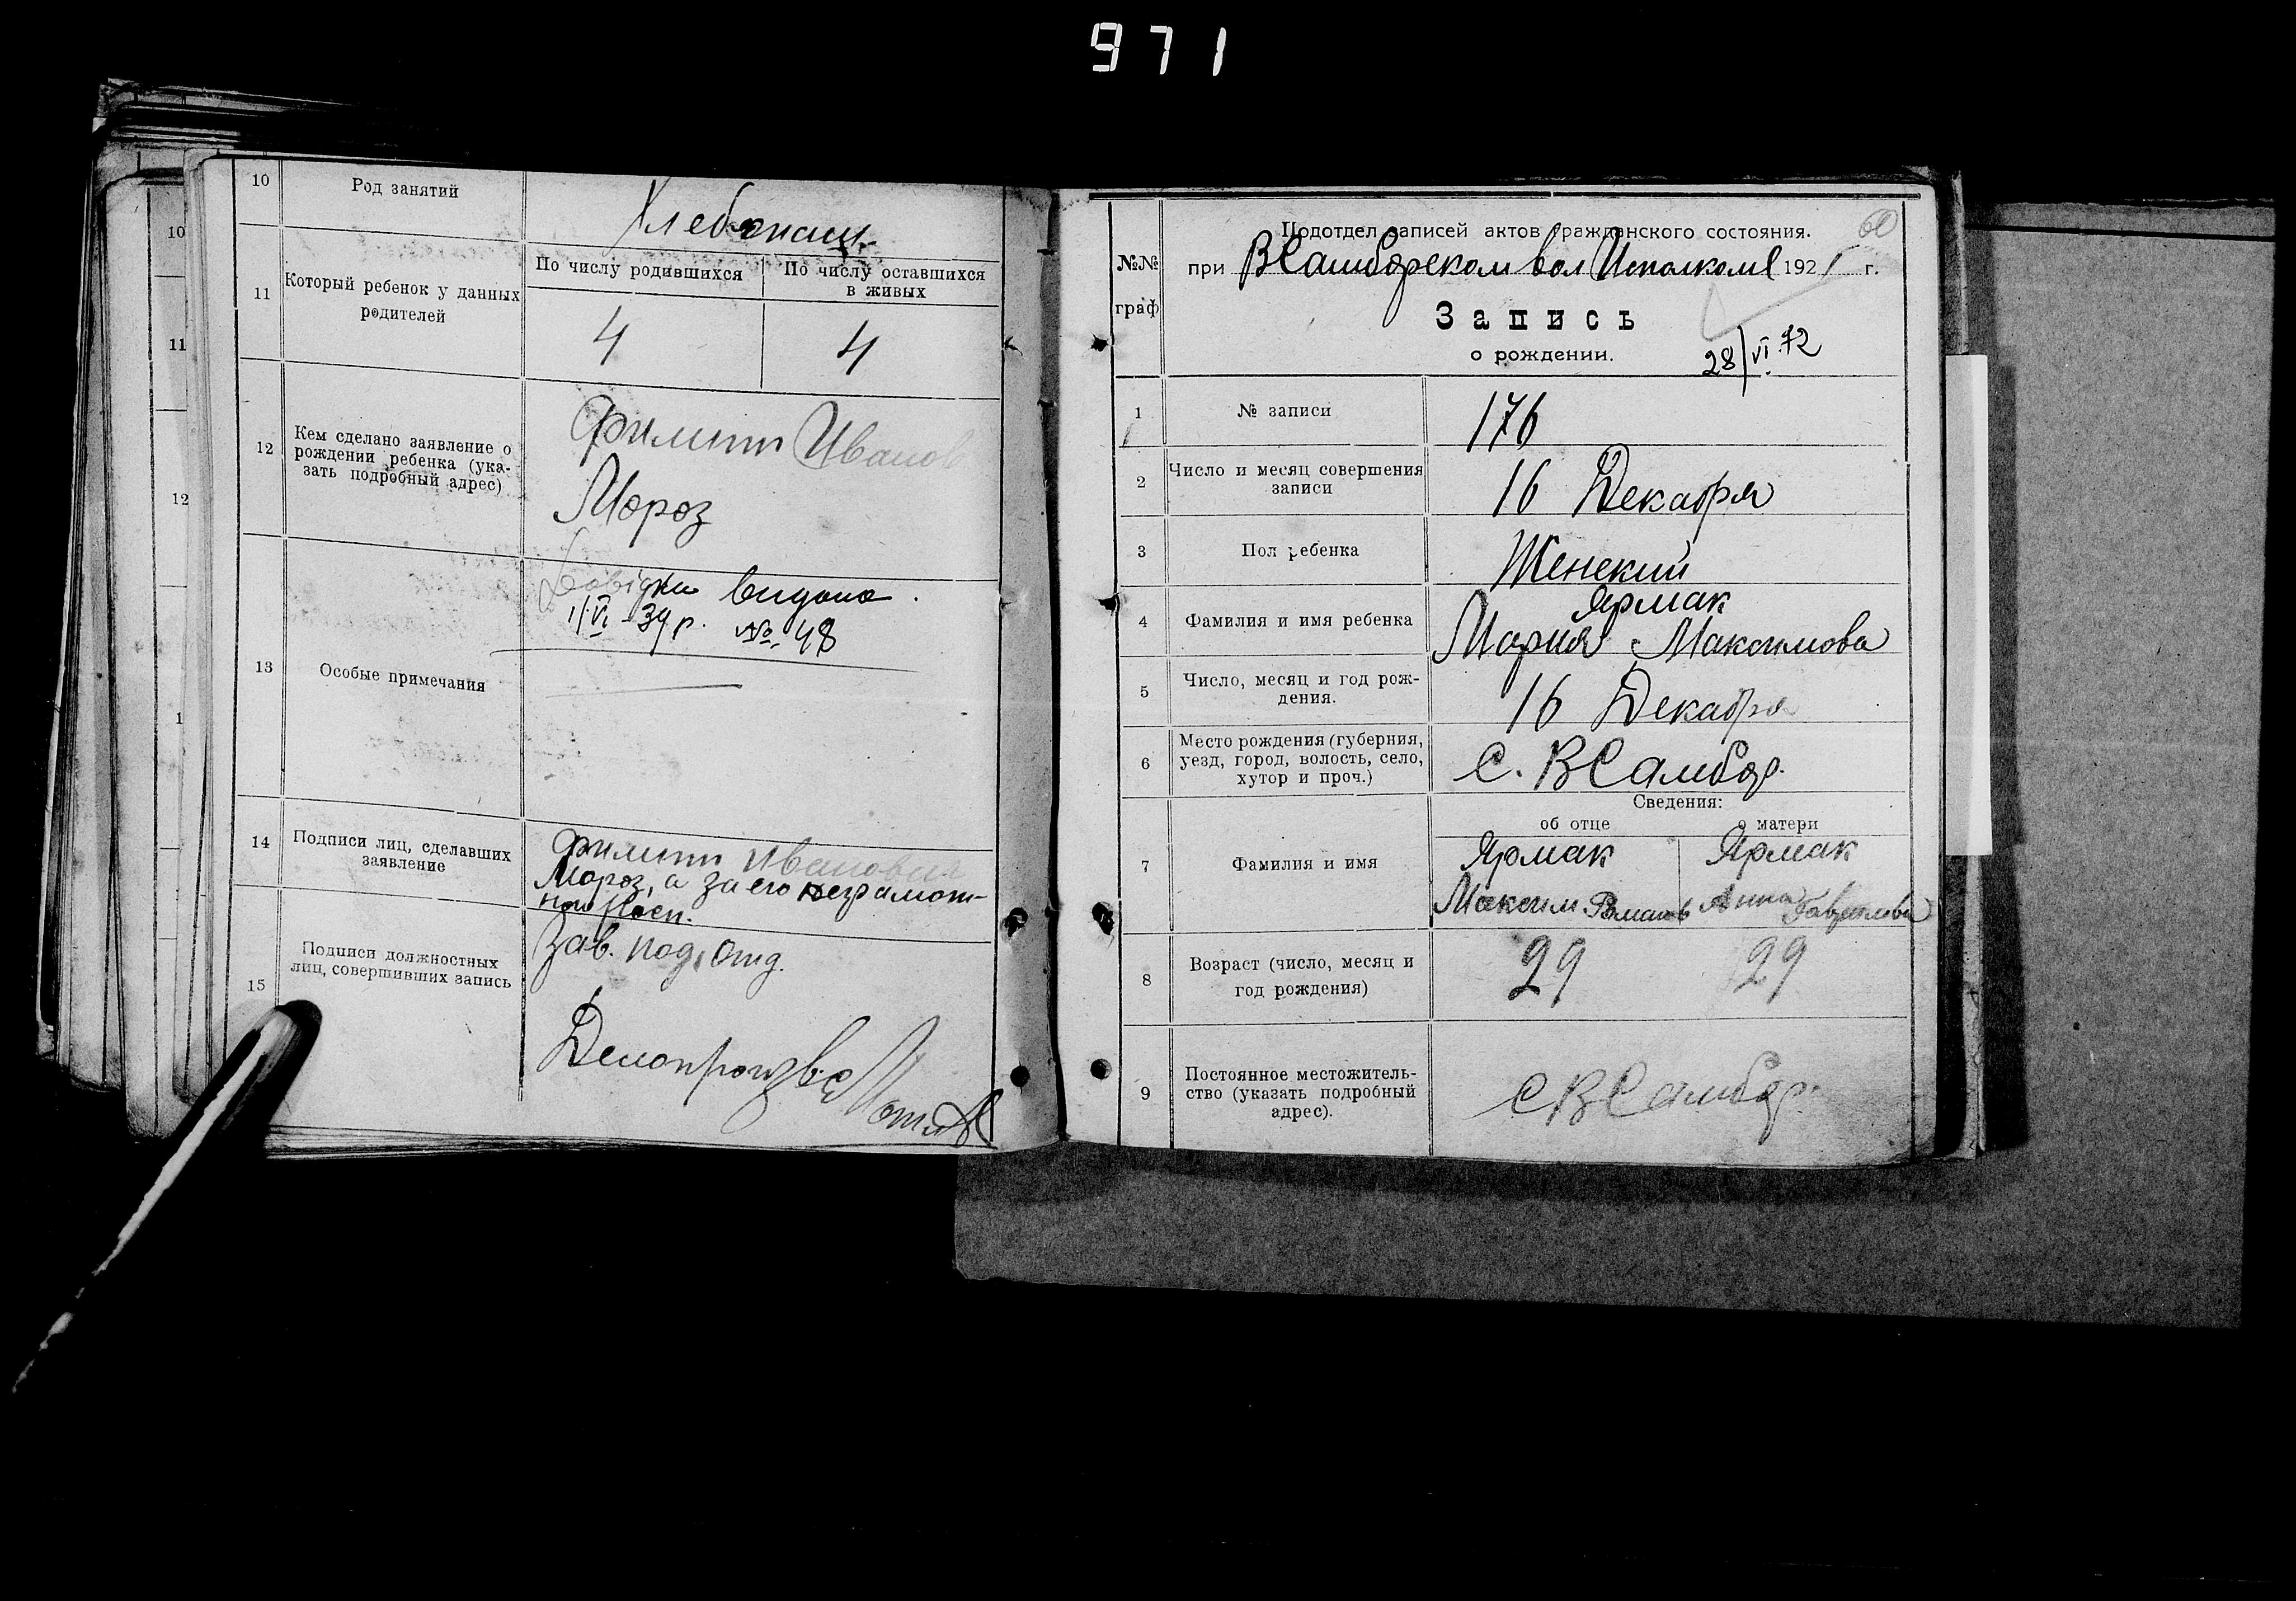 971
10 Род занятий
Хлебопащ.
11 Который ребенок у данных
родителей
По числу родившихся
По число оставшихся
в живых
4
4
12 Кем сделано заявление о
рождении ребенка (ука-
зать подробный адрес)
Филипп Иванов
Мороз
13 Особые примечания
Довідка видана.
11/VI-39 р. № 48
14 Подписи лиц, сделавших
заявление
Филипп Иванович
Мороз, а за его неграмот-
15 Подписи должностных
лиц, совершивших запись
Зав. под. отд.
Делопроизв.
10
11
12
1
№№
граф
Подотдел записей актов гражданского состояния.
60
при ВСамборском вол Исполкоме 1921 г.
Запись
о рождении.
28/VI.72
1 № записи
176
2 Число и месяц совершения
записи
16 Декабря
3 Пол ребенка
Женский
4 Фамилия и имя ребенка
Ярмак
Мария Максимова
5 Число, месяц и год рож-
дения.
16 Декабря
6 Место рождения (губерния,
уезд, город, волость, село,
хутор и проч.)
С. ВСамбор.
Сведения:
об отце
о матери
7 Фамилия и имя
Ярмак
Максим Романов
Ярмак
Анна Гаврилова
8 Возраст (число, месяц и
год рождения)
29
29
9 Постоянное местожитель-
ство (указать подробный
адрес).
С ВСамбор.